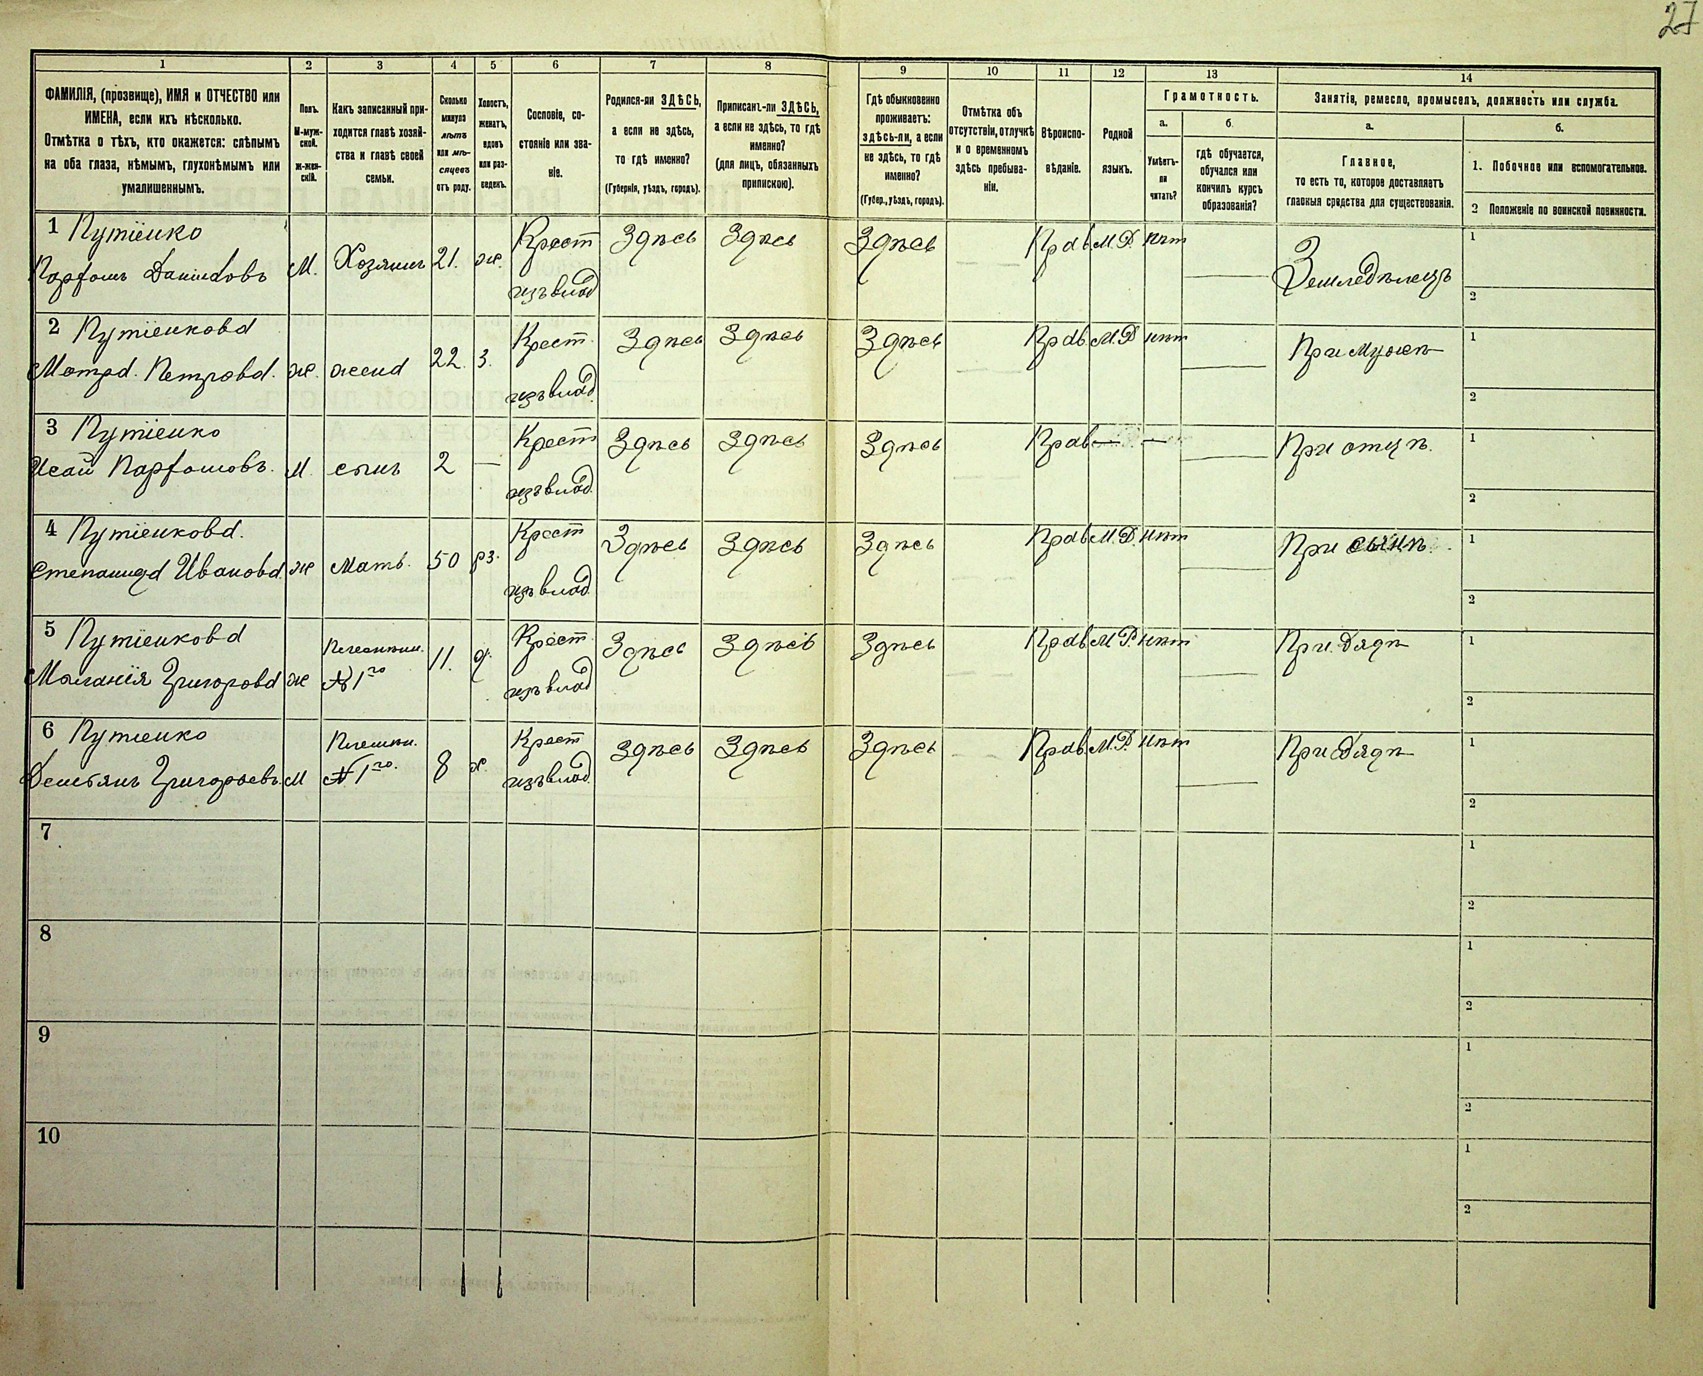 27
1 2 3 4 5 6 7 8 9 10 11 12 13 14
ФАМИЛІЯ, (прозвище), ИМЯ и ОТЧЕСТВО или
ИМЕНА, если ихъ нѣсколько.
Отмѣтка о тѣхъ, кто окажется: слѣпымъ
на оба глаза, нѣмымъ, глухонѣмымъ или
умалишеннымъ.
Полъ.
М-муж-
ской.
Ж-жен-
скій.
Какъ записанный при-
ходится главѣ хозяй-
ства и главѣ своей
семьи.
Сколько
минуло
лѣтъ
или мѣ-
сяцевъ
отъ роду.
Холостъ,
женатъ,
вдовъ
или раз-
веденъ.
Сословіе, со-
стояніе или зва-
ніе.
Родился-ли ЗДѢСЬ,
а если не здѣсь,
то гдѣ именно?
(Губернія, уѣздъ, городъ).
Приписанъ-ли ЗДѢСЬ,
а если не здѣсь, то гдѣ
именно?
(для лицъ, обязанныхъ
припискою).
Гдѣ обыкновенно
проживаетъ:
здѣсь-ли, а если
не здѣсь, то гдѣ
именно?
(Губер., уѣздъ, городъ).
Отмѣтка объ
отсутствіи, отлучкѣ
и о временномъ
здѣсь пребыва-
ніи.
Вѣроиспо-
вѣданіе.
Родной
языкъ.
Грамотность.
а.
Умѣетъ-
ли
читать?
б.
гдѣ обучается,
обучался или
кончилъ курсъ
образованія?
Занятіе, ремесло, промыселъ, должность или служба.
а.
Главное,
то есть то, которое доставляетъ
главныя средства для существованія.
б.
1. Побочное или вспомогательное.
2 Положеніе по воинской повинности.
1 Путіенко
Парфонъ Даниловъ М. Хозяинъ 21. ж. Крест изъ влад Здѣсь Здѣсь Здѣсь — — Прав М.Р. нѣт — Земледѣлецъ 1
2
2 Путіенкова
Матрa. Петрова. ж. жена 22. З. Крест. изъ влад. Здѣсь Здѣсь Здѣсь — — Прав М.Р нѣт — При мужѣ 1
2
3 Путіенко
Исай Парфоновъ. М. сынъ 2 — Крест изъ влад. Здѣсь Здѣсь Здѣсь — — Прав — — — При отцѣ. 1
2
4 Путіенкова.
Степанида Иванова. ж Мать. 50 Крест изъ влад. Здѣсь Здѣсь Здѣсь — — Прав М.Р. нѣт — При сынѣ. 1
2
5 Путіенкова
Маланія Григорова ж № 1го 11. Крест. изъ влад Здѣсь Здѣсь Здѣсь — — Прав М.Р. нѣт — При. Дядѣ 1
2
6 Путіенко
Демьянъ Григорьевъ. М № 1го. 8 х. Крест изъ влад. Здѣсь Здѣсь Здѣсь — — Прав. М.Р. нѣт — При Дядѣ 1
2
7 1
2
8 1
2
9 1
2
10 1
2